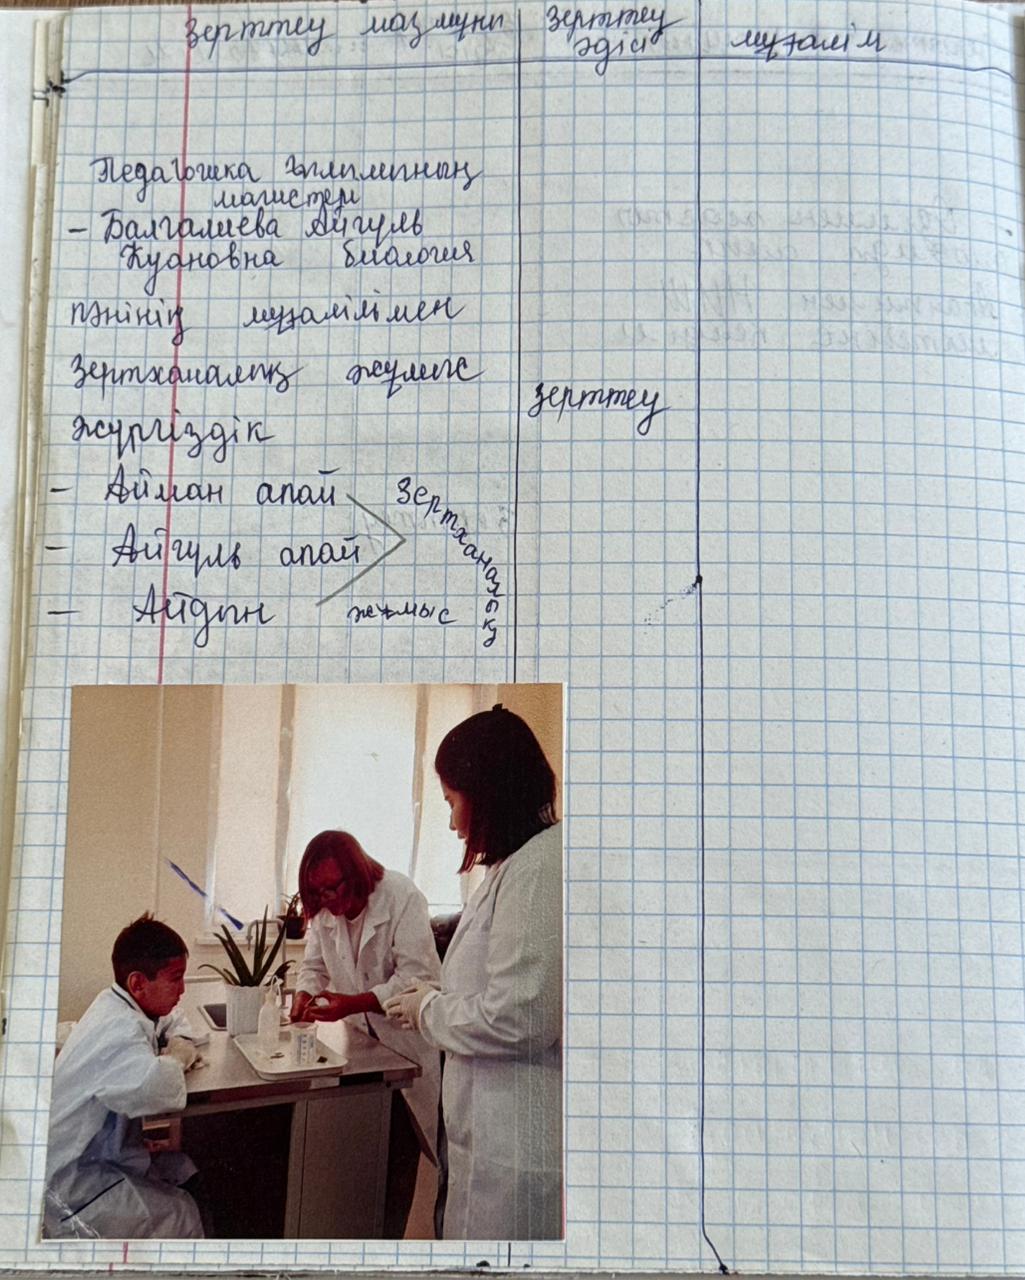 Зерттеу мазмұны
Зерттеу
әдісі
мұғалім
Педагогика ғылымының
магистері
- Балгалиева Айгуль
Куановна биология
пәнінің мұғалілімен
Зертханалық жұмыс
жүргіздік
Зерттеу
- Айман апай
- Айгуль апай
- Айдын
Зертханалық
жұмыс